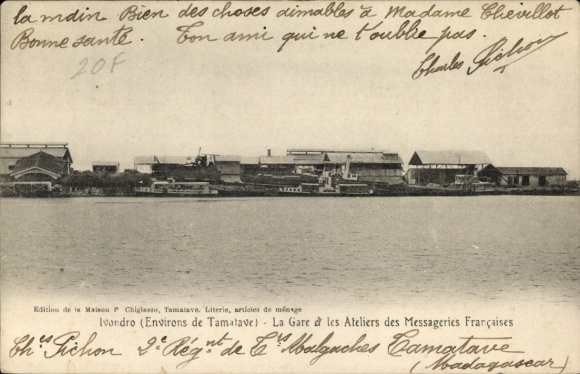 la main Bien des choses aimables à Madame Chevillot
Bonne santé. Ton ami qui ne t'oublie pas.
20F
Charles Pichon
Edition de la Maison P. Ghigiasso, Tamatave. Literie, articles de ménage
Ivondro (Environs de Tamatave) - La Gare et les Ateliers des Messageries Françaises
Ch.es Pichon 2e Régnt de Tirs Malgaches Tamatave
(Madagascar)